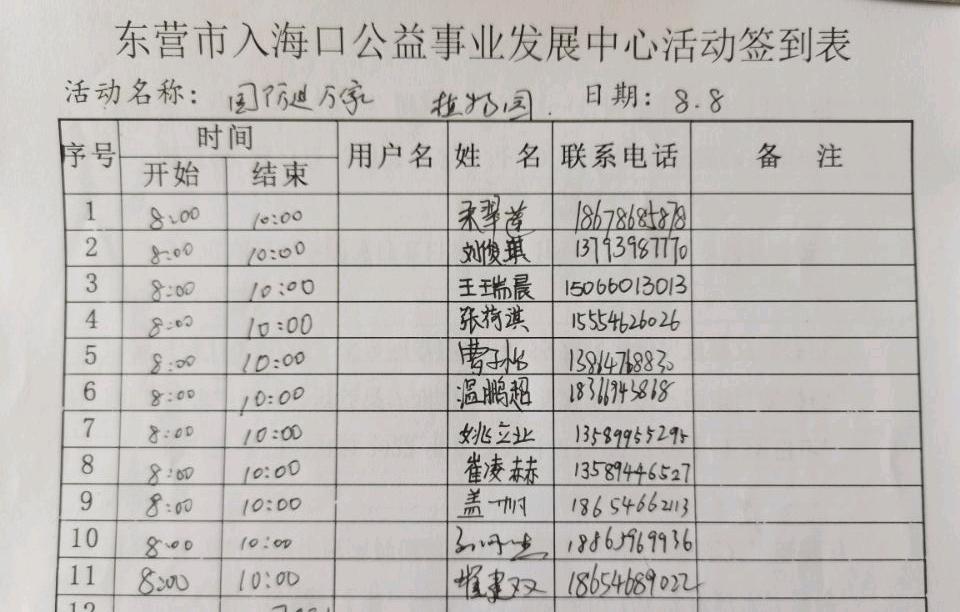 东营市入海口公益事业发展中心活动签到表
活动名称：国防进万家 植物园 日期：8.8
序号 时间 用户名 姓名 联系电话 备注
开始 结束
1 8:00 10:00 宋翠莲 18678685878
2 8:00 10:00 刘俊琪 13793987770
3 8:00 10:00 王瑞晨 15066013013
4 8:00 10:00 张荷淇 15554626026
5 8:00 10:00 曹子 13864768830
6 8:00 10:00 温鹏超 18366945868
7 8:00 10:00 姚立业 13589955295
8 8:00 10:00 崔凌赫 13589446527
9 8:00 10:00 盖 18654662113
10 8:00 10:00 18863969936
11 8:00 10:00 崔建双 18654689022
12